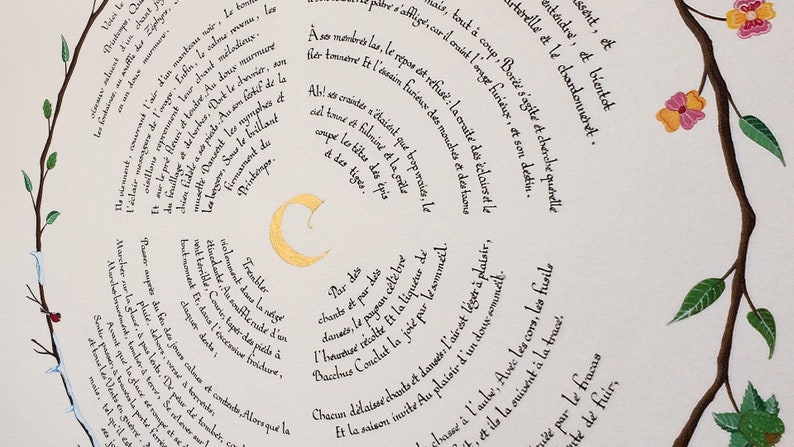 Voici le
Printemps, Que
oiseaux saluent d'un chant
les fontaines, au souffle des Zéphyrs,
en un doux murmure
Ils viennent, couvrant l'air d'un manteau noir, Le tonnerre
l'éclair messagers de l'orage. Enfin, le calme revenu, les
oisillons reprennent leur chant mélodieux.
Et sur le pré fleuri et tendre, Au doux murmure
du feuillage et des herbes, Dort le chevrier, son
chien fidèle à ses pieds. Au son festif de la
musette Dansent les nymphes et
les bergers, Sous le brillant
firmament du
Printemps.
issent, et
entendre, et bientôt
tourterelle et le chardonneret.
mais, tout à coup, Borée s'agite et cherche querelle
le pâtre s'afflige, car il craint l'orage furieux, et son destin.
À ses membres las, le repos est refusé: la crainte des éclairs et le
fier tonnerre Et l'essaim furieux des mouches et des taons
Ah! ses craintes n'étaient que trop vraies, le
ciel tonne et fulmine et la grêle
coupe les têtes des épis
et des tiges.
Par des
chants et par des
danses, le paysan célèbre
l'heureuse récolte Et la liqueur de
Bacchus Conclut la joie par le sommeil.
Chacun délaisse chants et danses: l'air est léger à plaisir,
Et la saison invite Au plaisir d'un doux sommeil.
chasse à l'aube, Avec les cors, les fusils
et ils la suivent à la trace.
par le fracas
de fuir,
Trembler
violemment dans la neige
étincelante, Au souffle rude d'un
vent terrible, Courir, taper des pieds à
tout moment Et, dans l'excessive froidure,
claquer des dents;
Passer auprès du feu des jours calmes et contents, Alors que la
pluie, dehors, verse à torrents;
Marcher sur la glace, à pas lents, De peur de tomber,
Marcher bravement, tomber à terre, Se relever
Avant que la glace se rompe et se
Sentir passer, à travers la porte
et tous les Vents en guerre
mais, tel qu'il est,